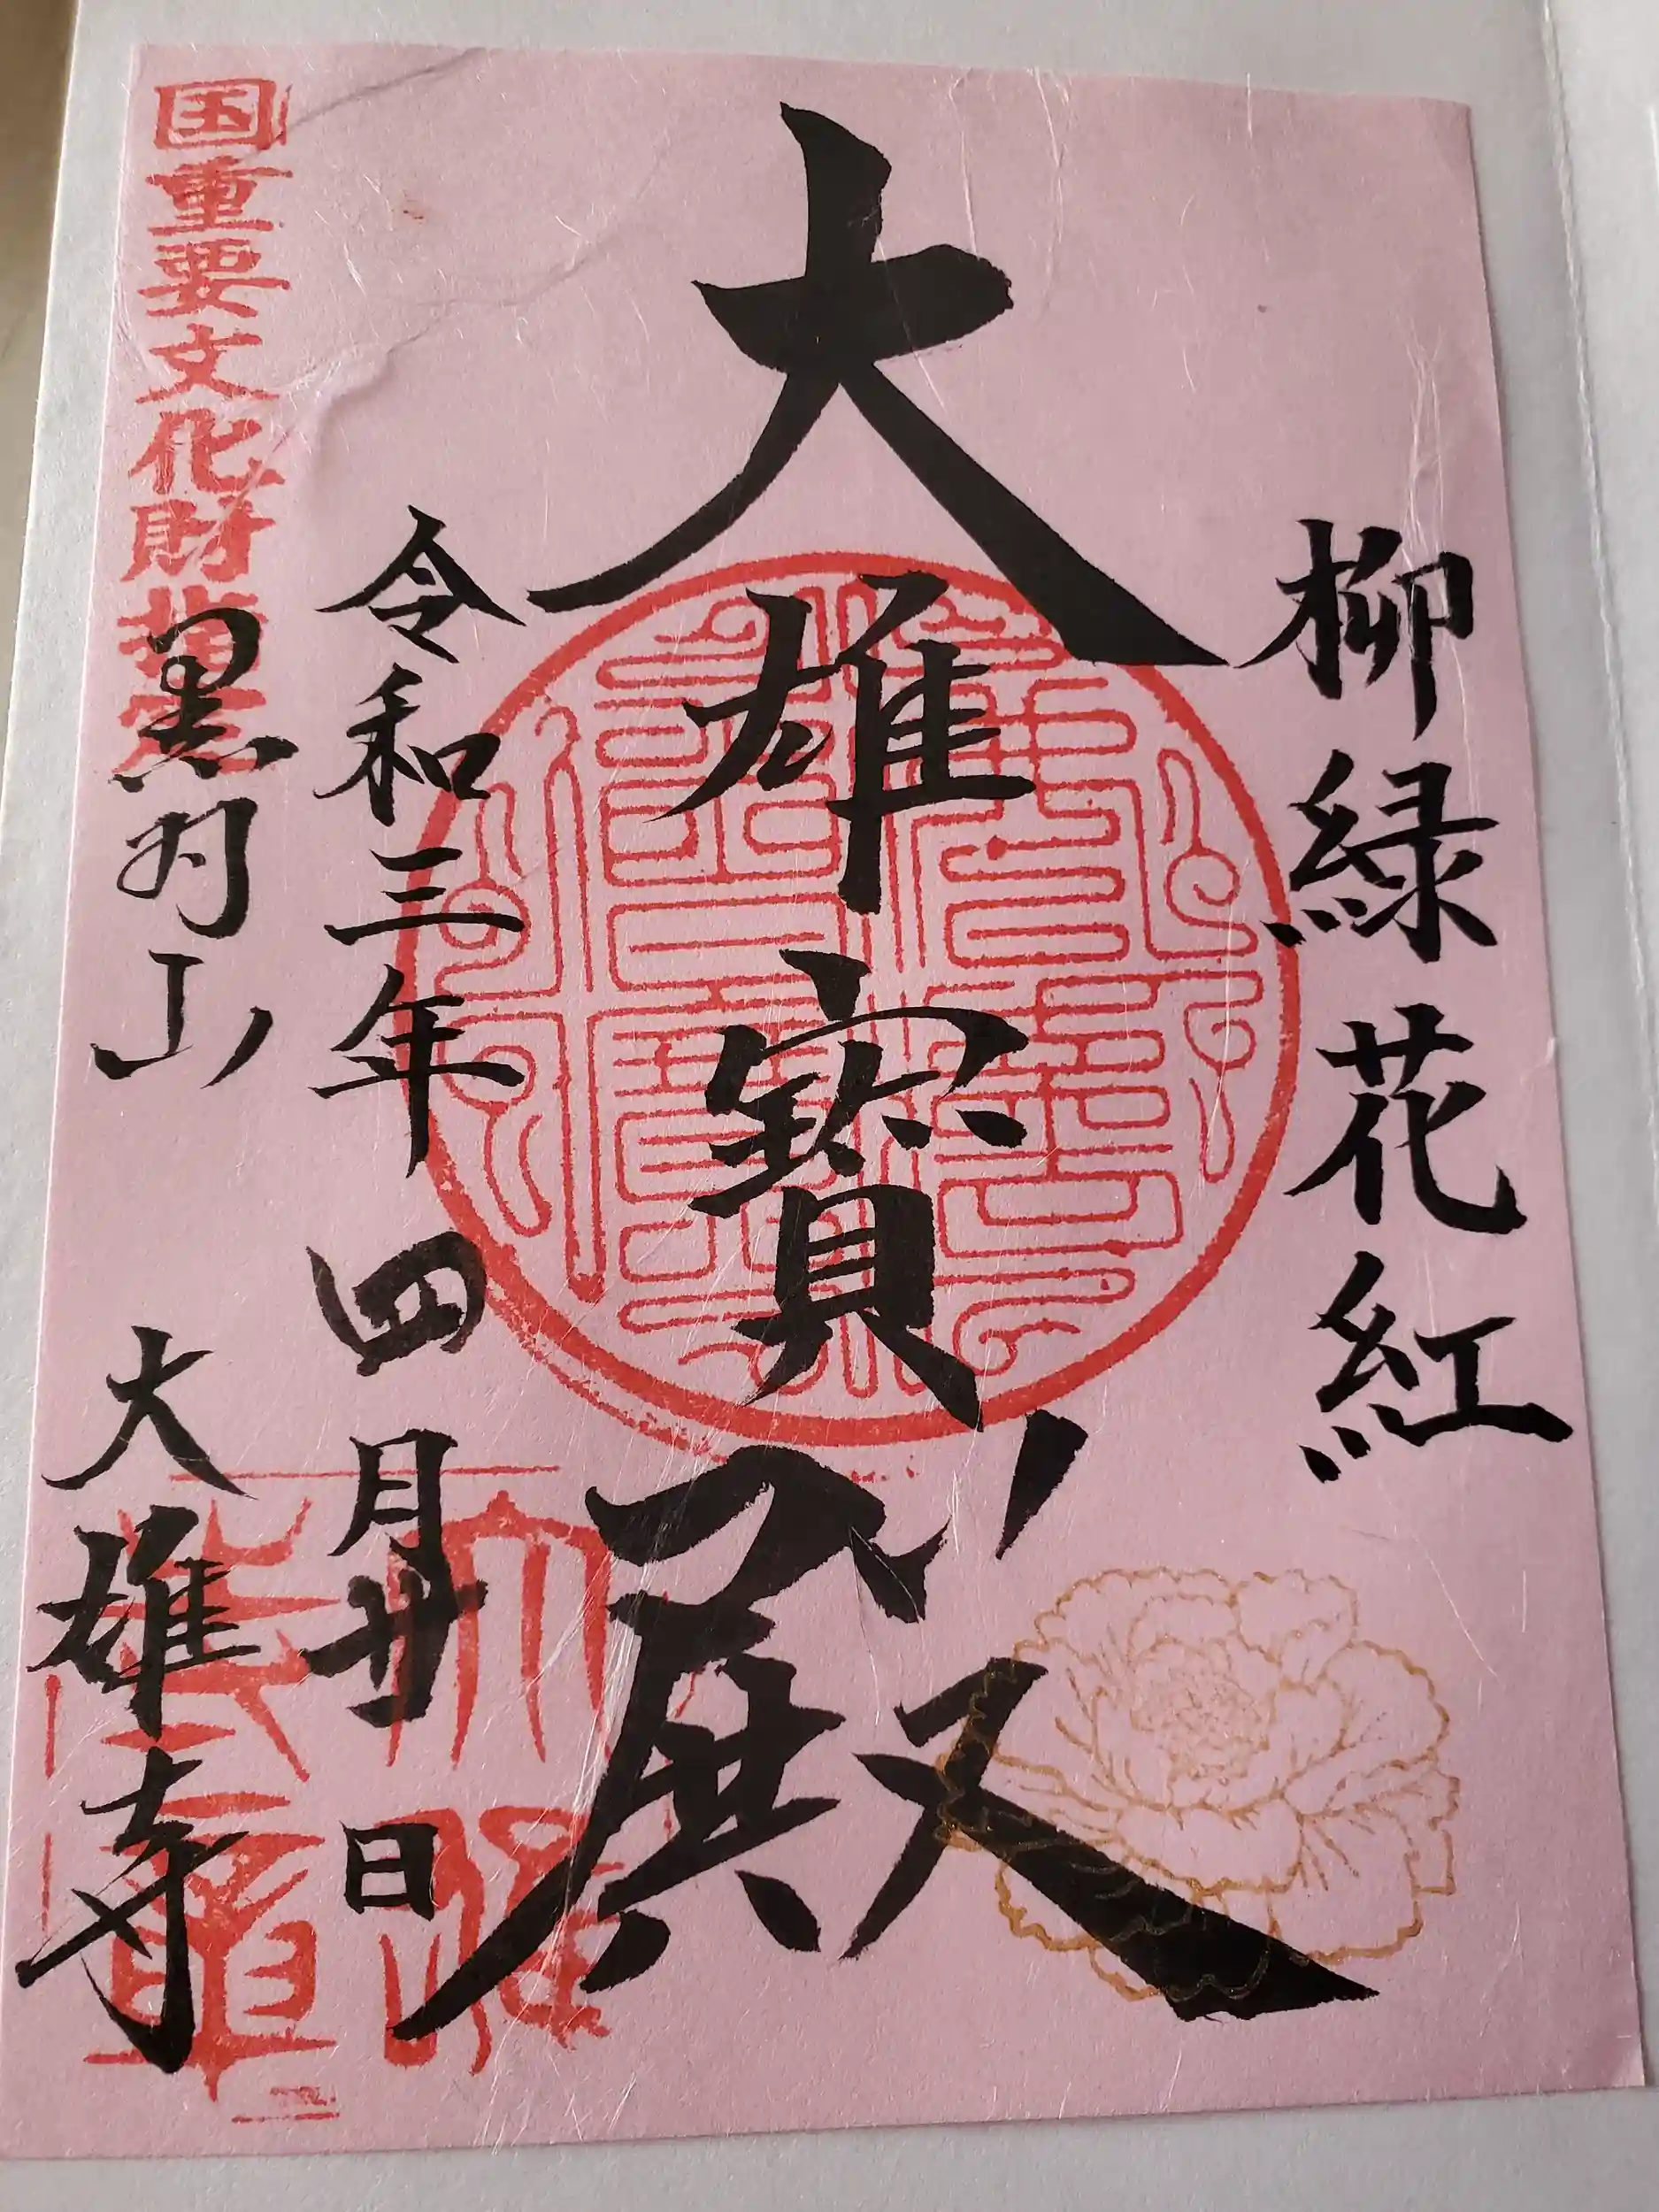 柳緑花紅
大雄寳殿
令和三年四月廿日
国重要文化財指定
黒羽山 大雄寺